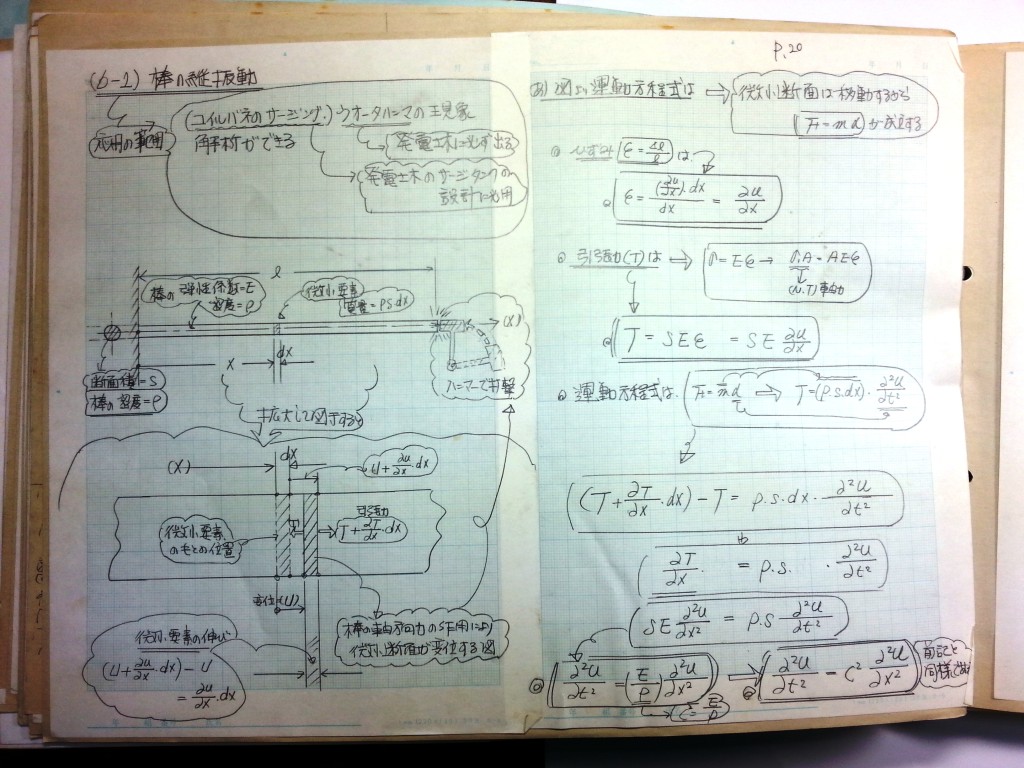 (6-1) 棒の縦振動
応用の範囲
(コイルバネのサージング)ウオータハンマの主現象
解析ができる
発電土木に必ず出る
発電土木のサージタンクの
設計に必用
l
棒の弾性係数=E
密度=ρ
微小要素
質量=ρs.dx
(X)
x
dx
断面積=S
棒の密度=ρ
ハンマーで打撃
拡大して図示すると
(X)
dx
U+∂u/∂x.dx
微小要素
のもとの位置
T
引張力
T+∂T/∂x.dx
変位(U)
棒の軸方向力の作用により
微小断面が変位する図
微小要素の伸び
(U+∂u/∂x.dx)-U
=∂u/∂x.dx
P,20
図より運動方程式は
微小断面は移動するから
F=mα が成立する
ひずみ ε=Δl/l は
ε=(∂u/∂x).dx/dx = ∂u/∂x
引張力(T)は
σ=Eε → σ.A=AEε
(N.T)軸力
T=SEε =SE ∂u/∂x
運動方程式は. F=mα T=(ρ.s.dx).∂²u/∂t²
(T+∂T/∂x.dx)-T= ρ.s.dx.∂²u/∂t²
∂T/∂x. =ρ.s. .∂²u/∂t²
SE ∂²u/∂x² =ρ.s ∂²u/∂t²
∂²u/∂t²=(E/ρ)∂²u/∂x²
∂²u/∂t²=C² ∂²u/∂x²
前記と
C²=E/ρ